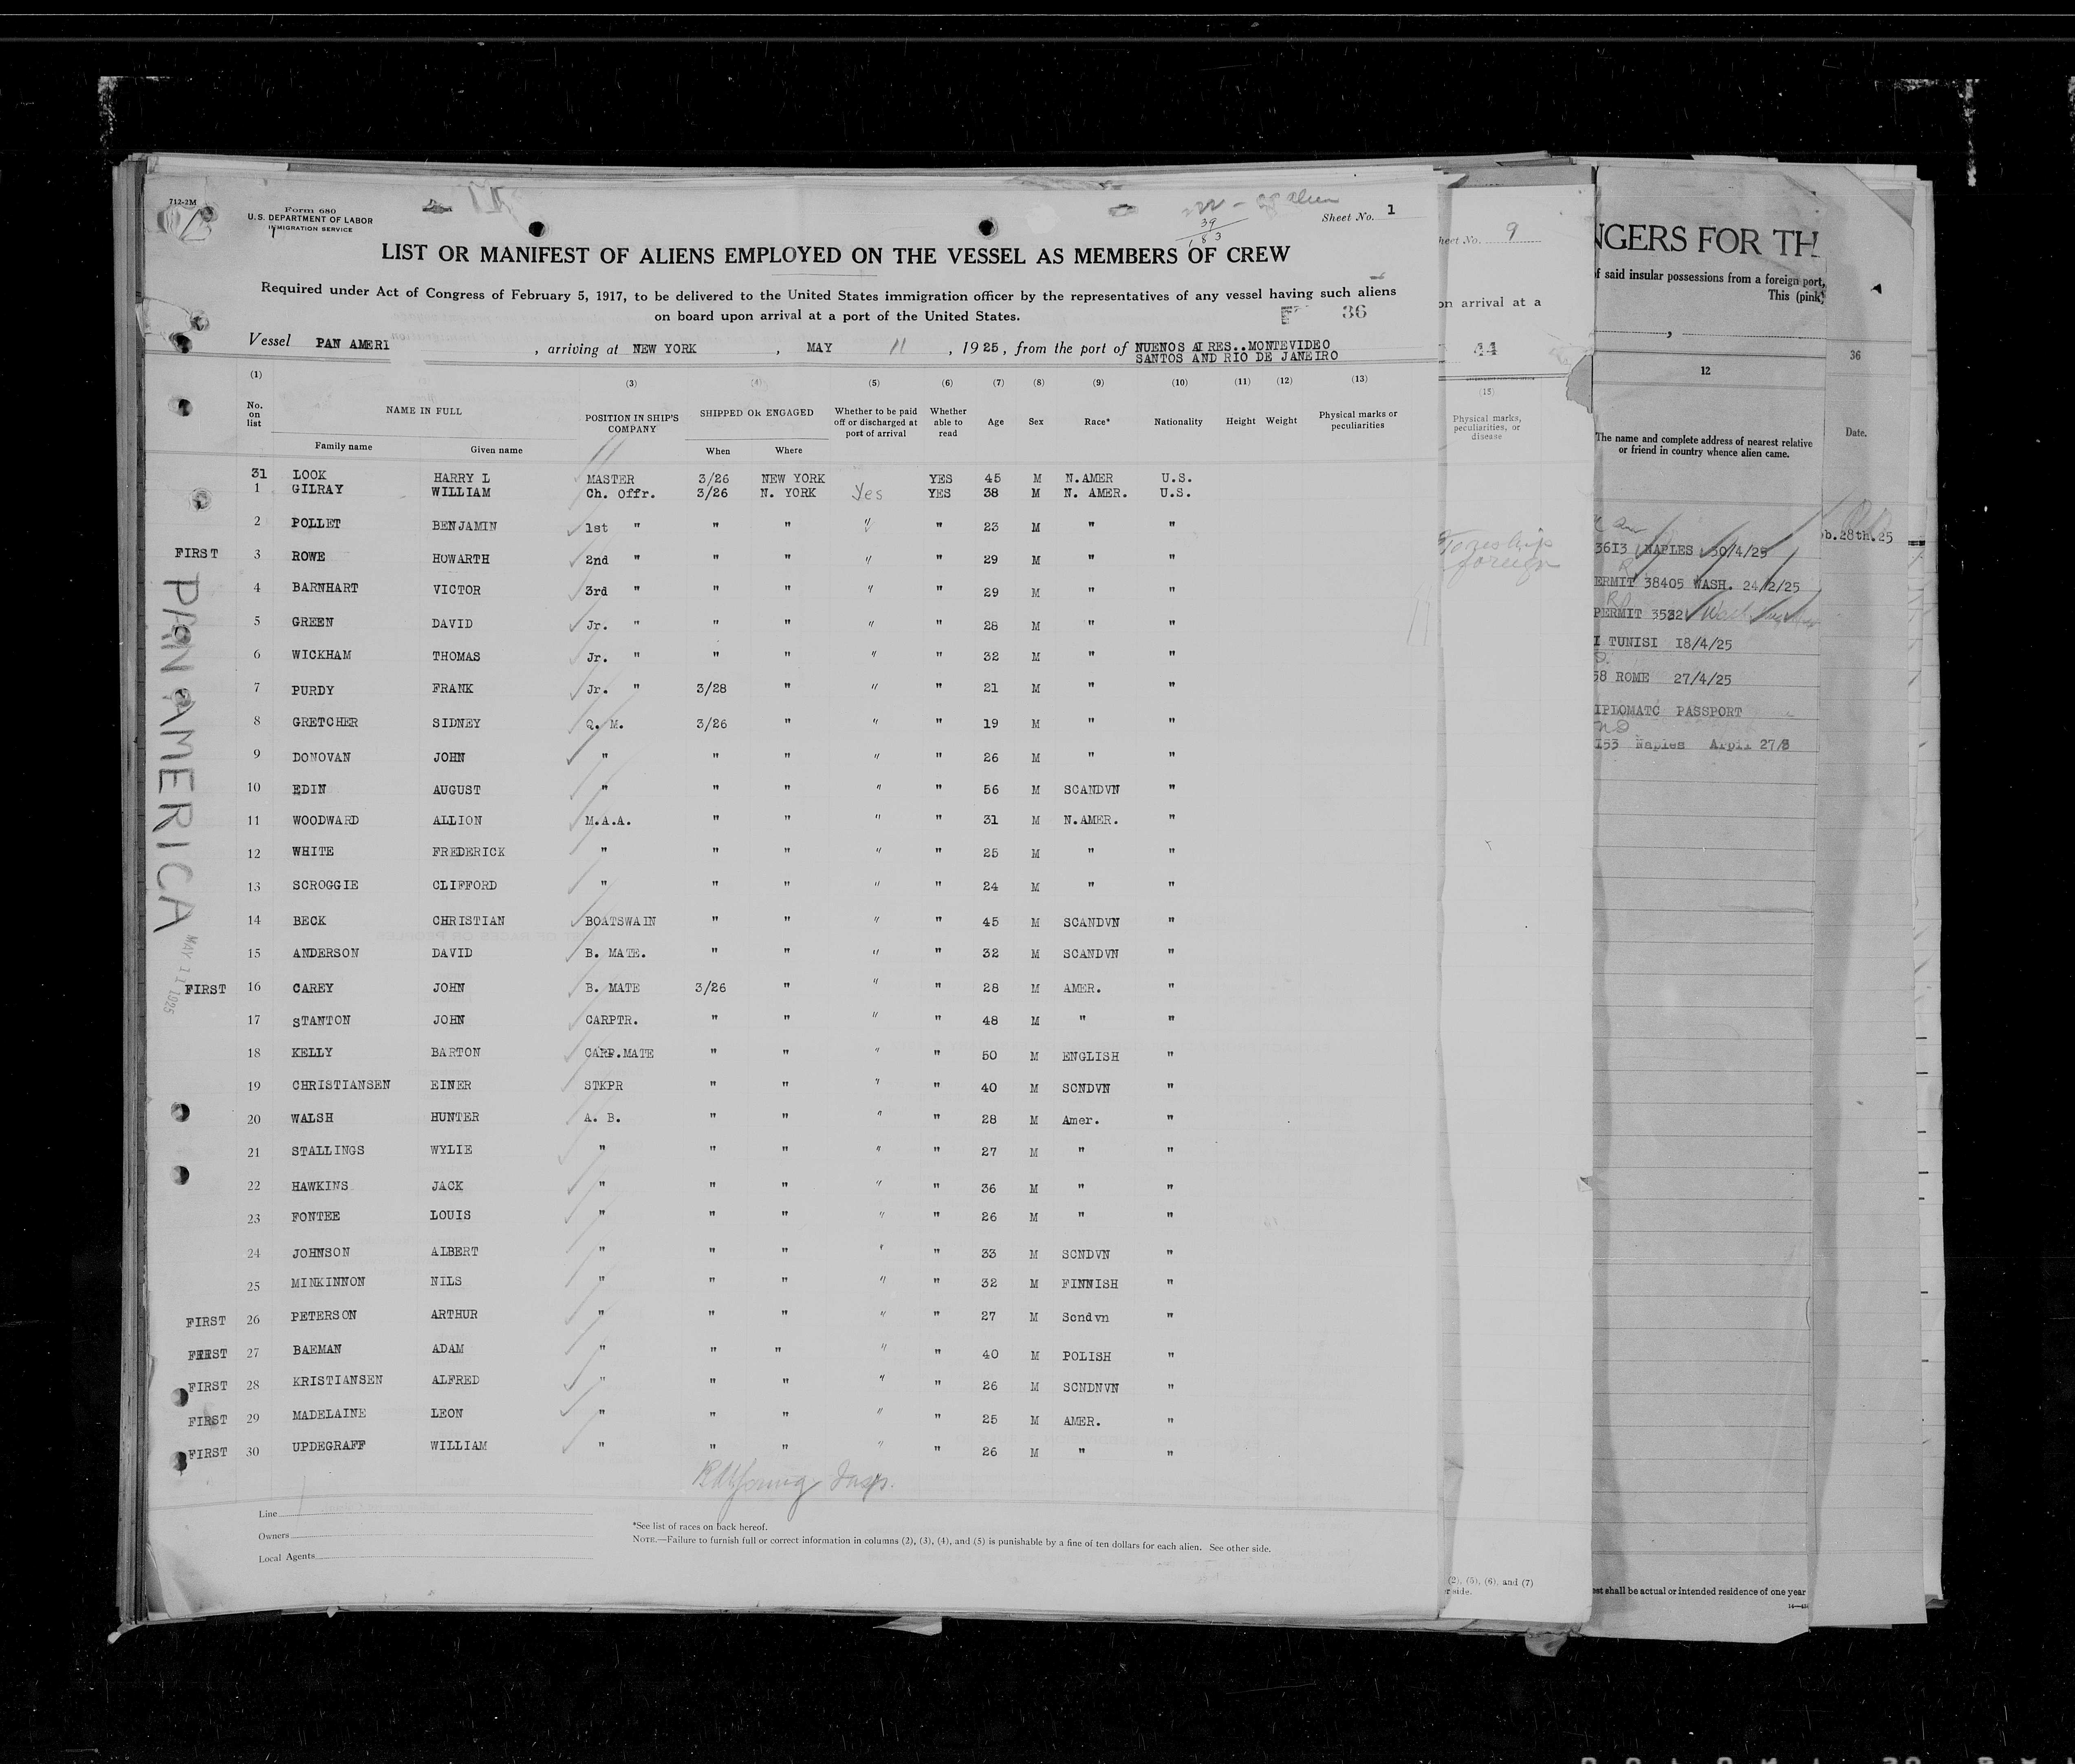 712-2M
Form 680
U.S. DEPARTMENT OF LABOR
IMMIGRATION SERVICE
39
183
Sheet No. 1
LIST OR MANIFEST OF ALIENS EMPLOYED ON THE VESSEL AS MEMBERS OF CREW
Required under Act of Congress of February 5, 1917, to be delivered to the United States immigration officer by the representatives of any vessel having such aliens
on board upon arrival at a port of the United States.
36
Vessel PAN AMERI , arriving at NEW YORK , MAY 11 , 1925, from the port of NUENOS AIRES..MONTEVIDEO
SANTOS AND RIO DE JANEIRO
(1) (3) (4) (5) (6) (7) (8) (9) (10) (11) (12) (13)
No. on list NAME IN FULL Family name Given name POSITION IN SHIP'S COMPANY SHIPPED OR ENGAGED When Where Whether to be paid off or discharged at port of arrival Whether able to read Age Sex Race* Nationality Height Weight Physical marks or peculiarities
31 LOOK HARRY L MASTER 3/26 NEW YORK YES 45 M N.AMER U.S.
1 GILRAY WILLIAM Ch. Offr. 3/26 N. YORK Yes YES 38 M N. AMER. U.S.
2 POLLET BENJAMIN 1st " " " " " 23 M " "
FIRST 3 ROWE HOWARTH 2nd " " " " " 29 M " "
4 BARNHART VICTOR 3rd " " " " " 29 M " "
5 GREEN DAVID Jr. " " " " " 28 M " "
6 WICKHAM THOMAS Jr. " " " " " 32 M " "
7 PURDY FRANK Jr. " 3/28 " " " 21 M " "
8 GRETCHER SIDNEY Q. M. 3/26 " " " 19 M " "
9 DONOVAN JOHN " " " " " 26 M " "
10 EDIN AUGUST " " " " " 56 M SCANDVN "
11 WOODWARD ALLION M.A.A. " " " " 31 M N.AMER. "
12 WHITE FREDERICK " " " " " 25 M " "
13 SCROGGIE CLIFFORD " " " " " 24 M " "
14 BECK CHRISTIAN BOATSWAIN " " " " 45 M SCANDVN "
15 ANDERSON DAVID B. MATE. " " " " 32 M SCANDVN "
FIRST 16 CAREY JOHN B. MATE 3/26 " " " 28 M AMER. "
17 STANTON JOHN CARPTR. " " " " 48 M " "
18 KELLY BARTON CARP.MATE " " " " 50 M ENGLISH "
19 CHRISTIANSEN EINER STKPR " " " " 40 M SCNDVN "
20 WALSH HUNTER A. B. " " " " 28 M Amer. "
21 STALLINGS WYLIE " " " " " 27 M " "
22 HAWKINS JACK " " " " " 36 M " "
23 FONTEE LOUIS " " " " " 26 M " "
24 JOHNSON ALBERT " " " " " 33 M SCNDVN "
25 MINKINNON NILS " " " " " 32 M FINNISH "
FIRST 26 PETERSON ARTHUR " " " " " 27 M Scndvn "
FIRST 27 BAEMAN ADAM " " " " " 40 M POLISH "
FIRST 28 KRISTIANSEN ALFRED " " " " " 26 M SCNDNVN "
FIRST 29 MADELAINE LEON " " " " " 25 M AMER. "
FIRST 30 UPDEGRAFF WILLIAM " " " " " 26 M " "
PAN AMERICA
MAY 11 1925
Line
Owners
Local Agents
*See list of races on back hereof.
NOTE.—Failure to furnish full or correct information in columns (2), (3), (4), and (5) is punishable by a fine of ten dollars for each alien. See other side.
heet No. 9
on arrival at a
44
(15)
Physical marks, peculiarities, or disease
foreign
(2), (5), (6), and (7)
r side.
NGERS FOR TH
of said insular possessions from a foreign port,
This (pink)
12
The name and complete address of nearest relative
or friend in country whence alien came.
3613 NAPLES 30/4/25
ERMIT 38405 WASH. 24/2/25
PERMIT 3532
I TUNISI 18/4/25
58 ROME 27/4/25
IPLOMATC PASSPORT
153 Naples Arpil 27/3
est shall be actual or intended residence of one year
36
Date.
b.28th.25